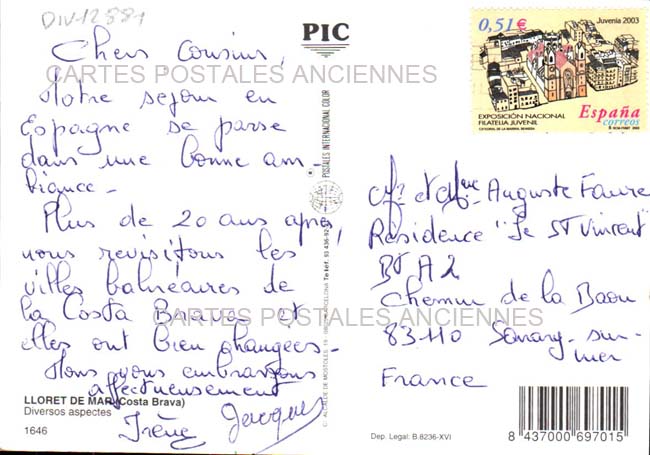 DIV-12887
PIC
Chers Cousins,
Notre séjour en
Espagne se passe
dans une bonne am-
biance -
Plus de 20 ans après,
nous revisitons les
villes balnéaires de
la Costa Brava et
elles ont bien changées -
Nous vous embrassons
affectueusement
Irène Jacques
LLORET DE MAR (Costa Brava)
Diversos aspectes
1646
CARTES POSTALES ANCIENNES
CARTES POSTALES ANCIENNES
POSTALES INTERNACIONAL COLOR
C/ ALCALDE DE MOSTOLES, 19 BARCELONA
0,51€
Juvenia 2003
EXPOSICIÓN NACIONAL
FILATELIA JUVENIL
España
correos
Mr et Mme Auguste Faure
Résidence "Le St Vincent"
Bt A2
Chemin de la Baou
83110 Sanary-sur-
mer
France
Dep. Legal: B.8236-XVI
8 437000 697015